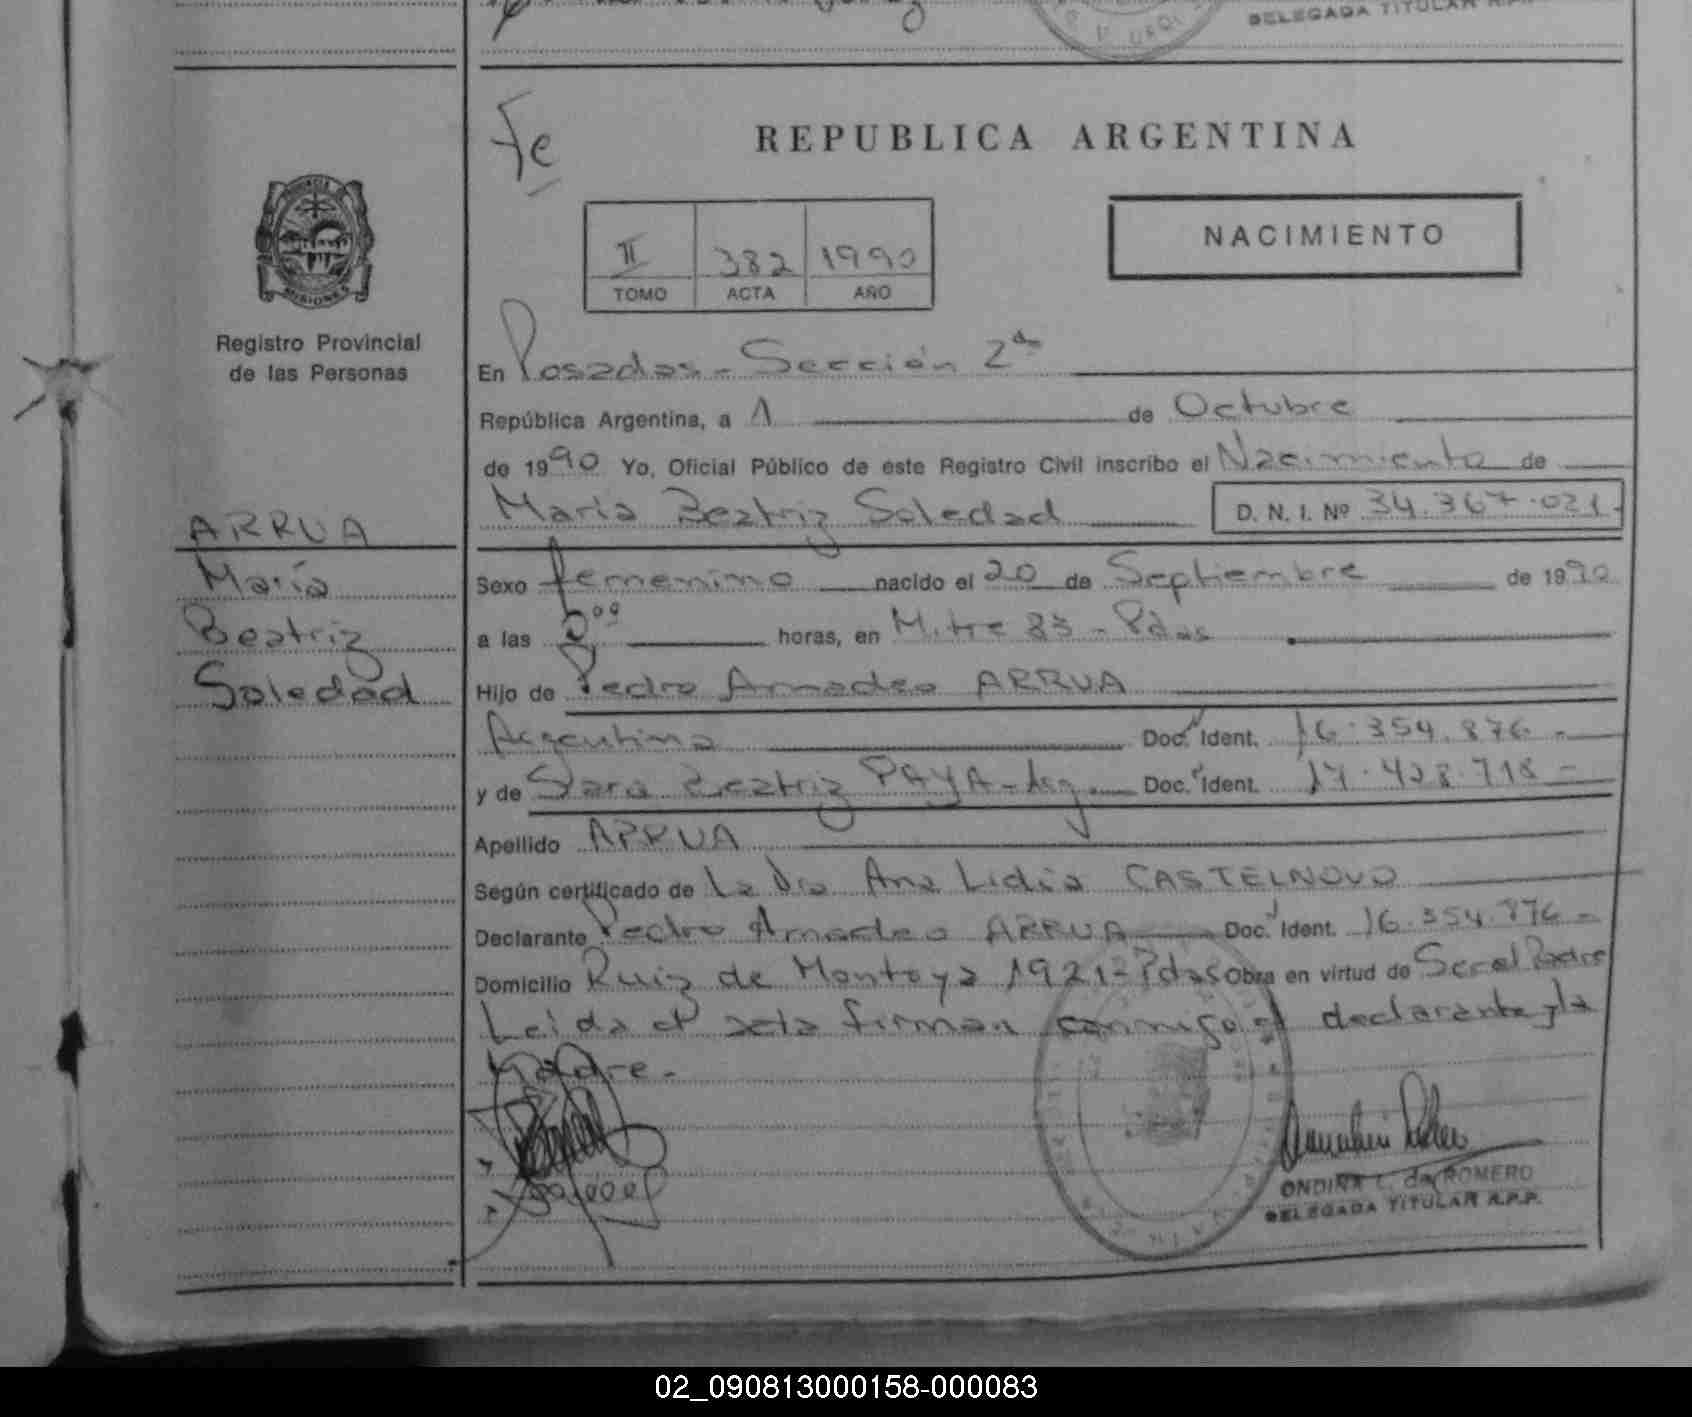 DELEGADA TITULAR R.P.P.
Fe
REPUBLICA ARGENTINA
NACIMIENTO
II 382 1990
TOMO ACTA AÑO
PROVINCIA DE
MISIONES
Registro Provincial
de las Personas
En Posadas - Sección 2da
República Argentina, a 1 de Octubre
de 1990 Yo, Oficial Público de este Registro Civil inscribo el Nacimiento de
María Beatriz Soledad D. N. I. Nº 34.367.021.
ARRUA
María
Beatriz
Soledad
Sexo femenino nacido el 20 de Septiembre de 1990
a las horas, en Mitre 83 - Pdas
Hijo de Pedro Amadeo ARRUA
Argentino Doc. Ident. 16.354.876 -
y de Sara Beatriz PAYA - Arg. Doc. Ident. 17.428.718 -
Apellido ARRUA
Según certificado de La Dra Ana Lidia CASTELNOVO
Declarante Pedro Amadeo ARRUA Doc. Ident. 16.354.876 -
Domicilio Ruiz de Montoya 1921 - Pdas Obra en virtud de Ser el Padre
Leida el acta firman conmigo el declarante y la
Madre.-
ONDINA L. de ROMERO
DELEGADA TITULAR R.P.P.
02_090813000158-000083